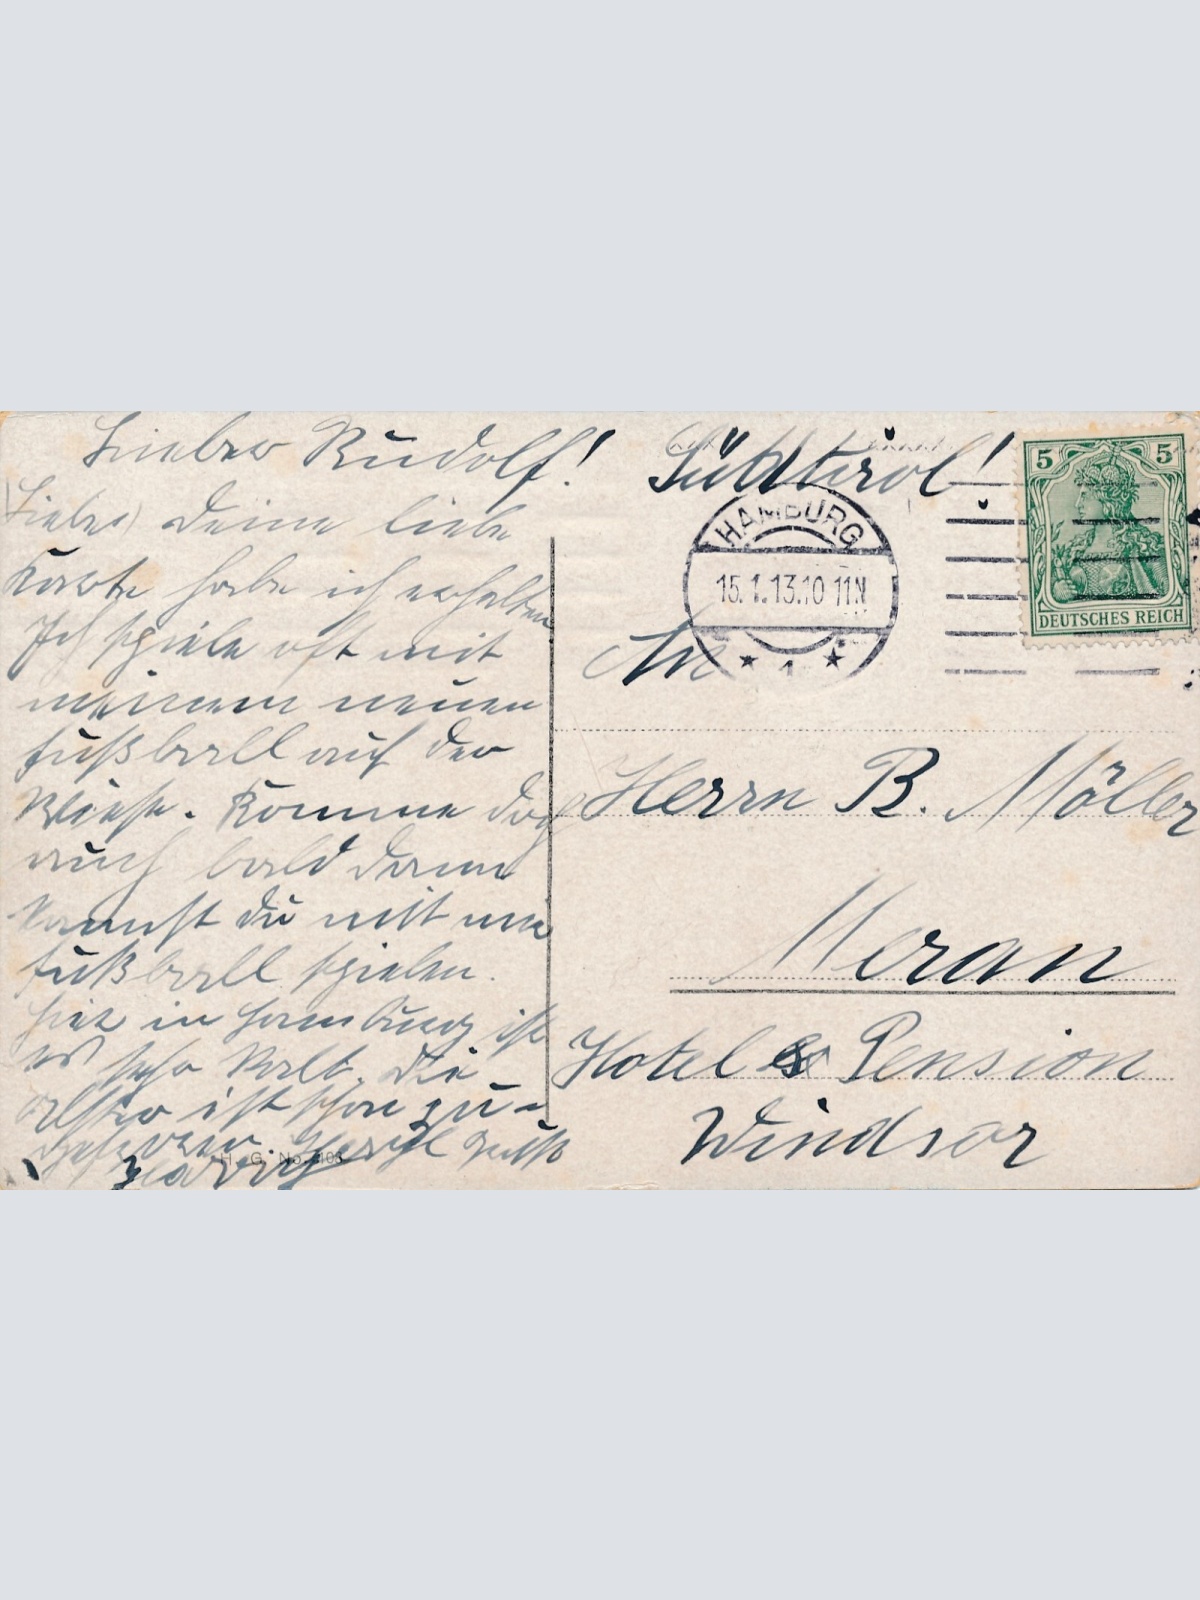 Lieber Rudolf!
(Liebe) Deine liebe
Karte habe ich erhalten
Ich spiele oft mit
meinem neuen
Fußball auf der
Wiese. Komme doch
auch bald dann
kannst Du mit mir
Fußball spielen.
Hier in Hamburg ist
es sehr kalt. Die
Alster ist schon zu-
gefroren. Gruß
H. G. No. 103
Südtirol!
HAMBURG
15.1.13.10-11N
* 1 *
5 5
DEUTSCHES REICH
An
Herrn B. Möller
Meran
Hotel & Pension
Windsor